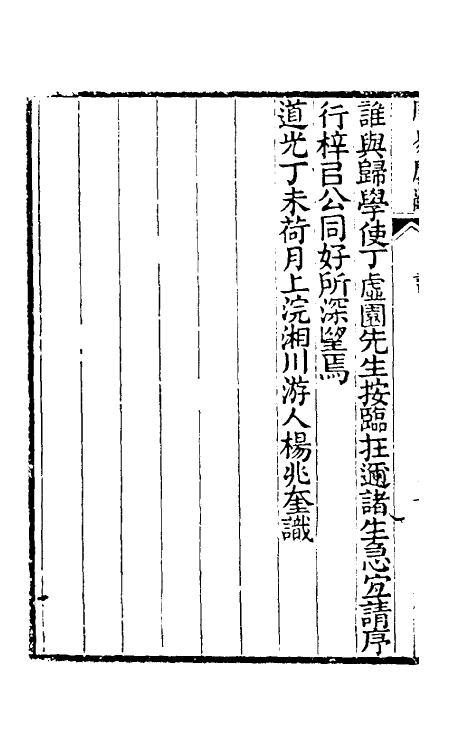 誰與歸學使丁虛園先生按臨在邇諸生急宜請序
行梓㠯公同好所深望焉
道光丁未荷月上浣湘川游人楊兆奎識